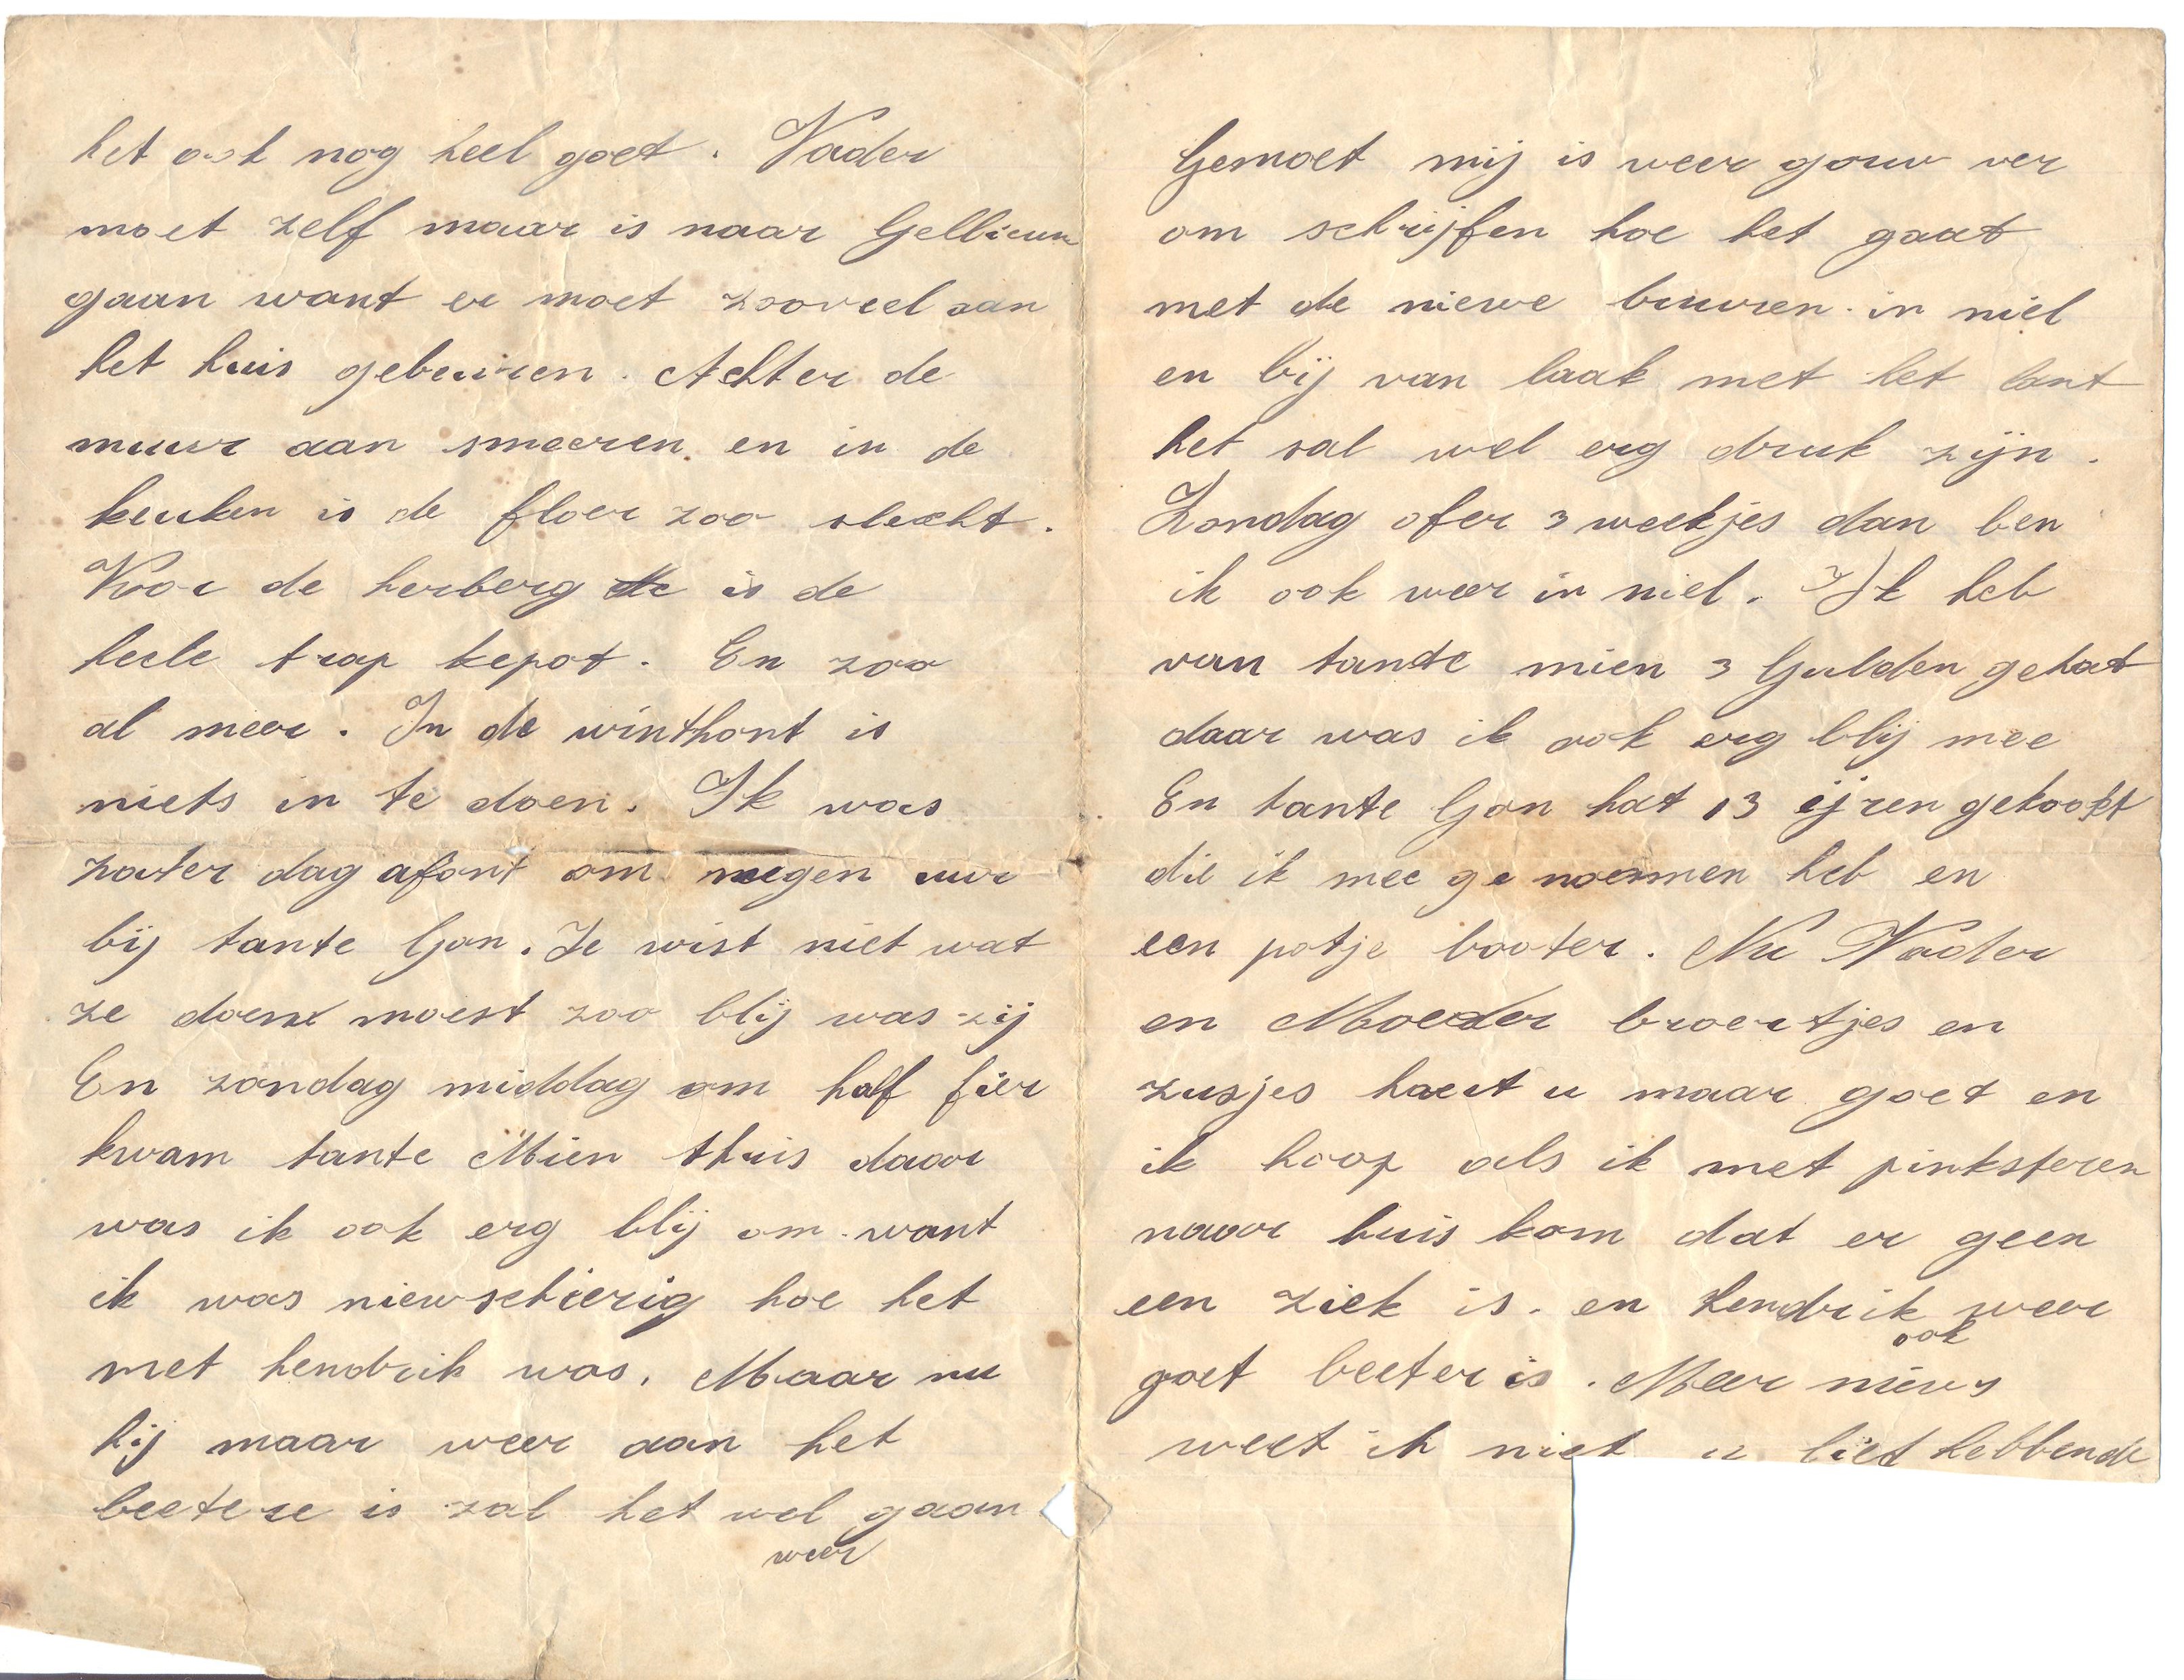 het ook nog heel goet. Vader
moet zelf maar is naar Gellicum
gaan want er moet zooveel aan
het huis gebeuren. Achter de
muur aan smeeren. en in de
keuken is de floer zoo slecht.
Voor de herberg is de
heele trap kepot. En zoo
al meer. In de winthont is
niets in te doen. Ik was
zater dag afont om negen uur
bij tante Gon. Ze wist niet wat
ze doent moest zoo blij was zij
En zondag middag om half fier
kwam tante Mien thuis daar
was ik ook erg blij om want
ik was niewschierig hoe het
met hendrik was. Maar nu
hij maar weer aan het
beetere is zal het wel gaan
weer
Gemoet mij is weer gouw ver
om schrijfen hoe het gaat
met de niewe buuren in niel
en bij van laak met het lant
het sal wel erg druk zijn.
Zondag ofer 3 weekjes dan ben
ik ook weer in niel. Ik heb
van tante mien 3 Gulden gehat
daar was ik ook erg blij mee
En tante Gon hat 13 ijren gekookt
die ik mee ge noemen heb en
een potje booter. Nu Vader
en Moeder broertjes en
zusjes haut u maar goet en
ik hoop als ik met pinksteren
naar huis kom dat er geen
een ziek is. en hendrik weer
ook
goet beeter is. Meer niews
weet ik niet u liet hebbende